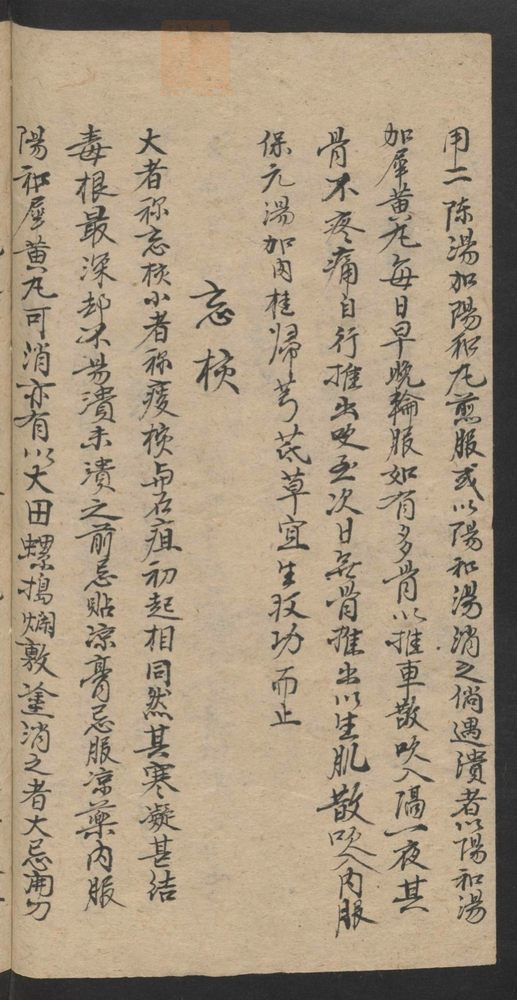 用二陳湯加陽和丸煎服或以陽和湯消之倘遇潰者以陽和湯
加犀黃丸每日早晚輪服如有多骨以推車散吹入隔一夜其
骨不疼痛自行推出吹至次日無骨推出以生肌散吹入內服
保元湯加肉桂歸芎芪草宜生收功而止
惡核
大者称惡核小者称痰核与石疽初起相同然其寒凝甚結
毒根最深却不易潰未潰之前忌貼凉膏忌服凉藥內服
陽和犀黃丸可消亦有以大田螺搗爛敷塗消之者大忌開刀